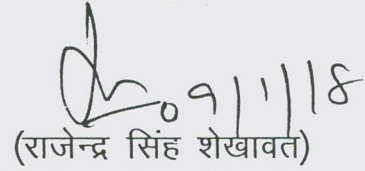 09/1/18
(राजेन्द्र सिंह शेखावत)